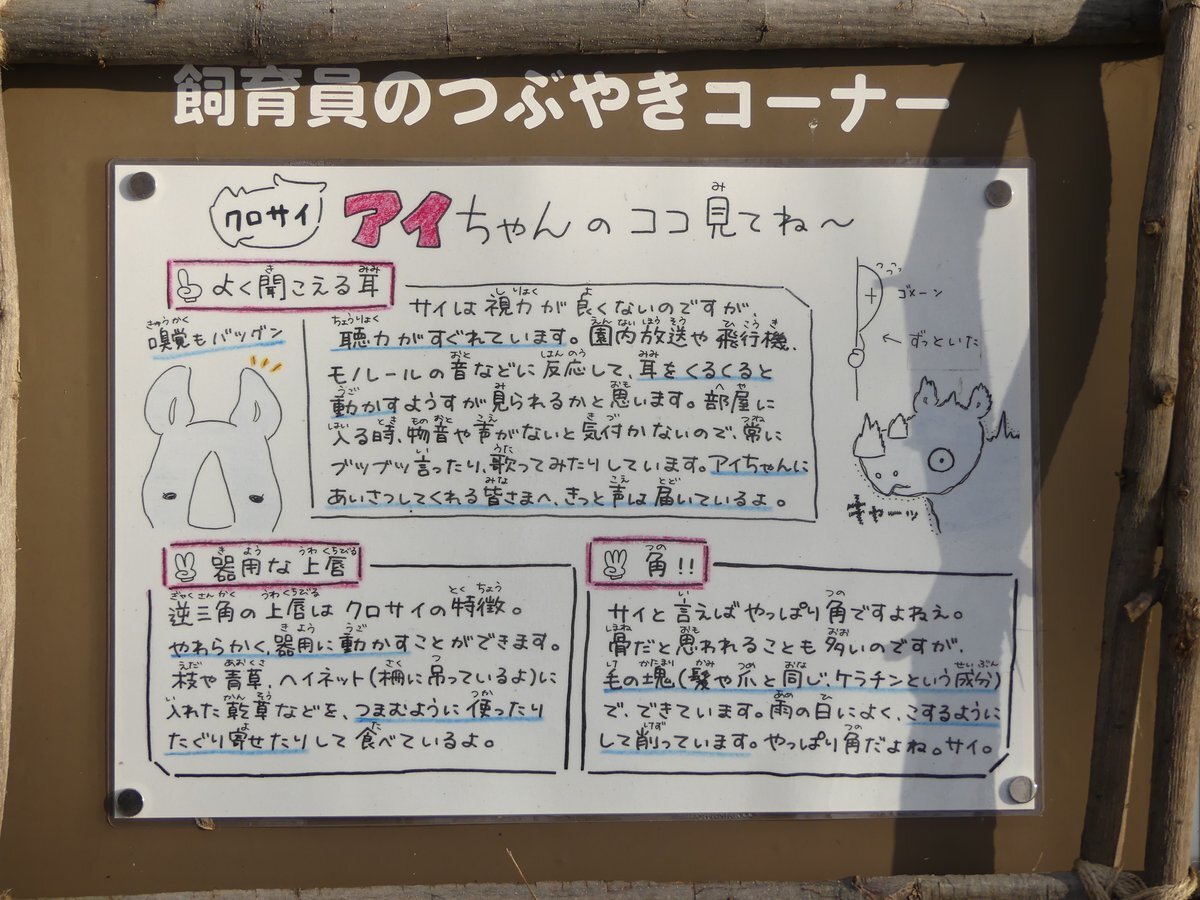 飼育員のつぶやきコーナー
クロサイ アイちゃんのココ見てね〜
よく聞こえる耳
嗅覚もバツグン
サイは視力が良くないのですが、
聴力がすぐれています。園内放送や飛行機、
モノレールの音などに反応して、耳をくるくると
動かすようすが見られるかと思います。部屋に
入る時、物音や声がないと気付かないので、常に
ブツブツ言ったり、歌ってみたりしています。アイちゃんに
あいさつしてくれる皆さまへ、きっと声は届いているよ。
ゴメーン
ずっといた
器用な上唇
逆三角の上唇はクロサイの特徴。
やわらかく、器用に動かすことができます。
枝や青草、ヘイネット(柵に吊っているよ)に
入れた乾草などを、つまむように使ったり
たぐり寄せたりして食べているよ。
角!!
サイと言えばやっぱり角ですよねぇ。
骨だと思われることも多いのですが、
毛の塊(髪や爪と同じ、ケラチンという成分)
で、できています。雨の日によく、こするように
して削っています。やっぱり角だよね。サイ。